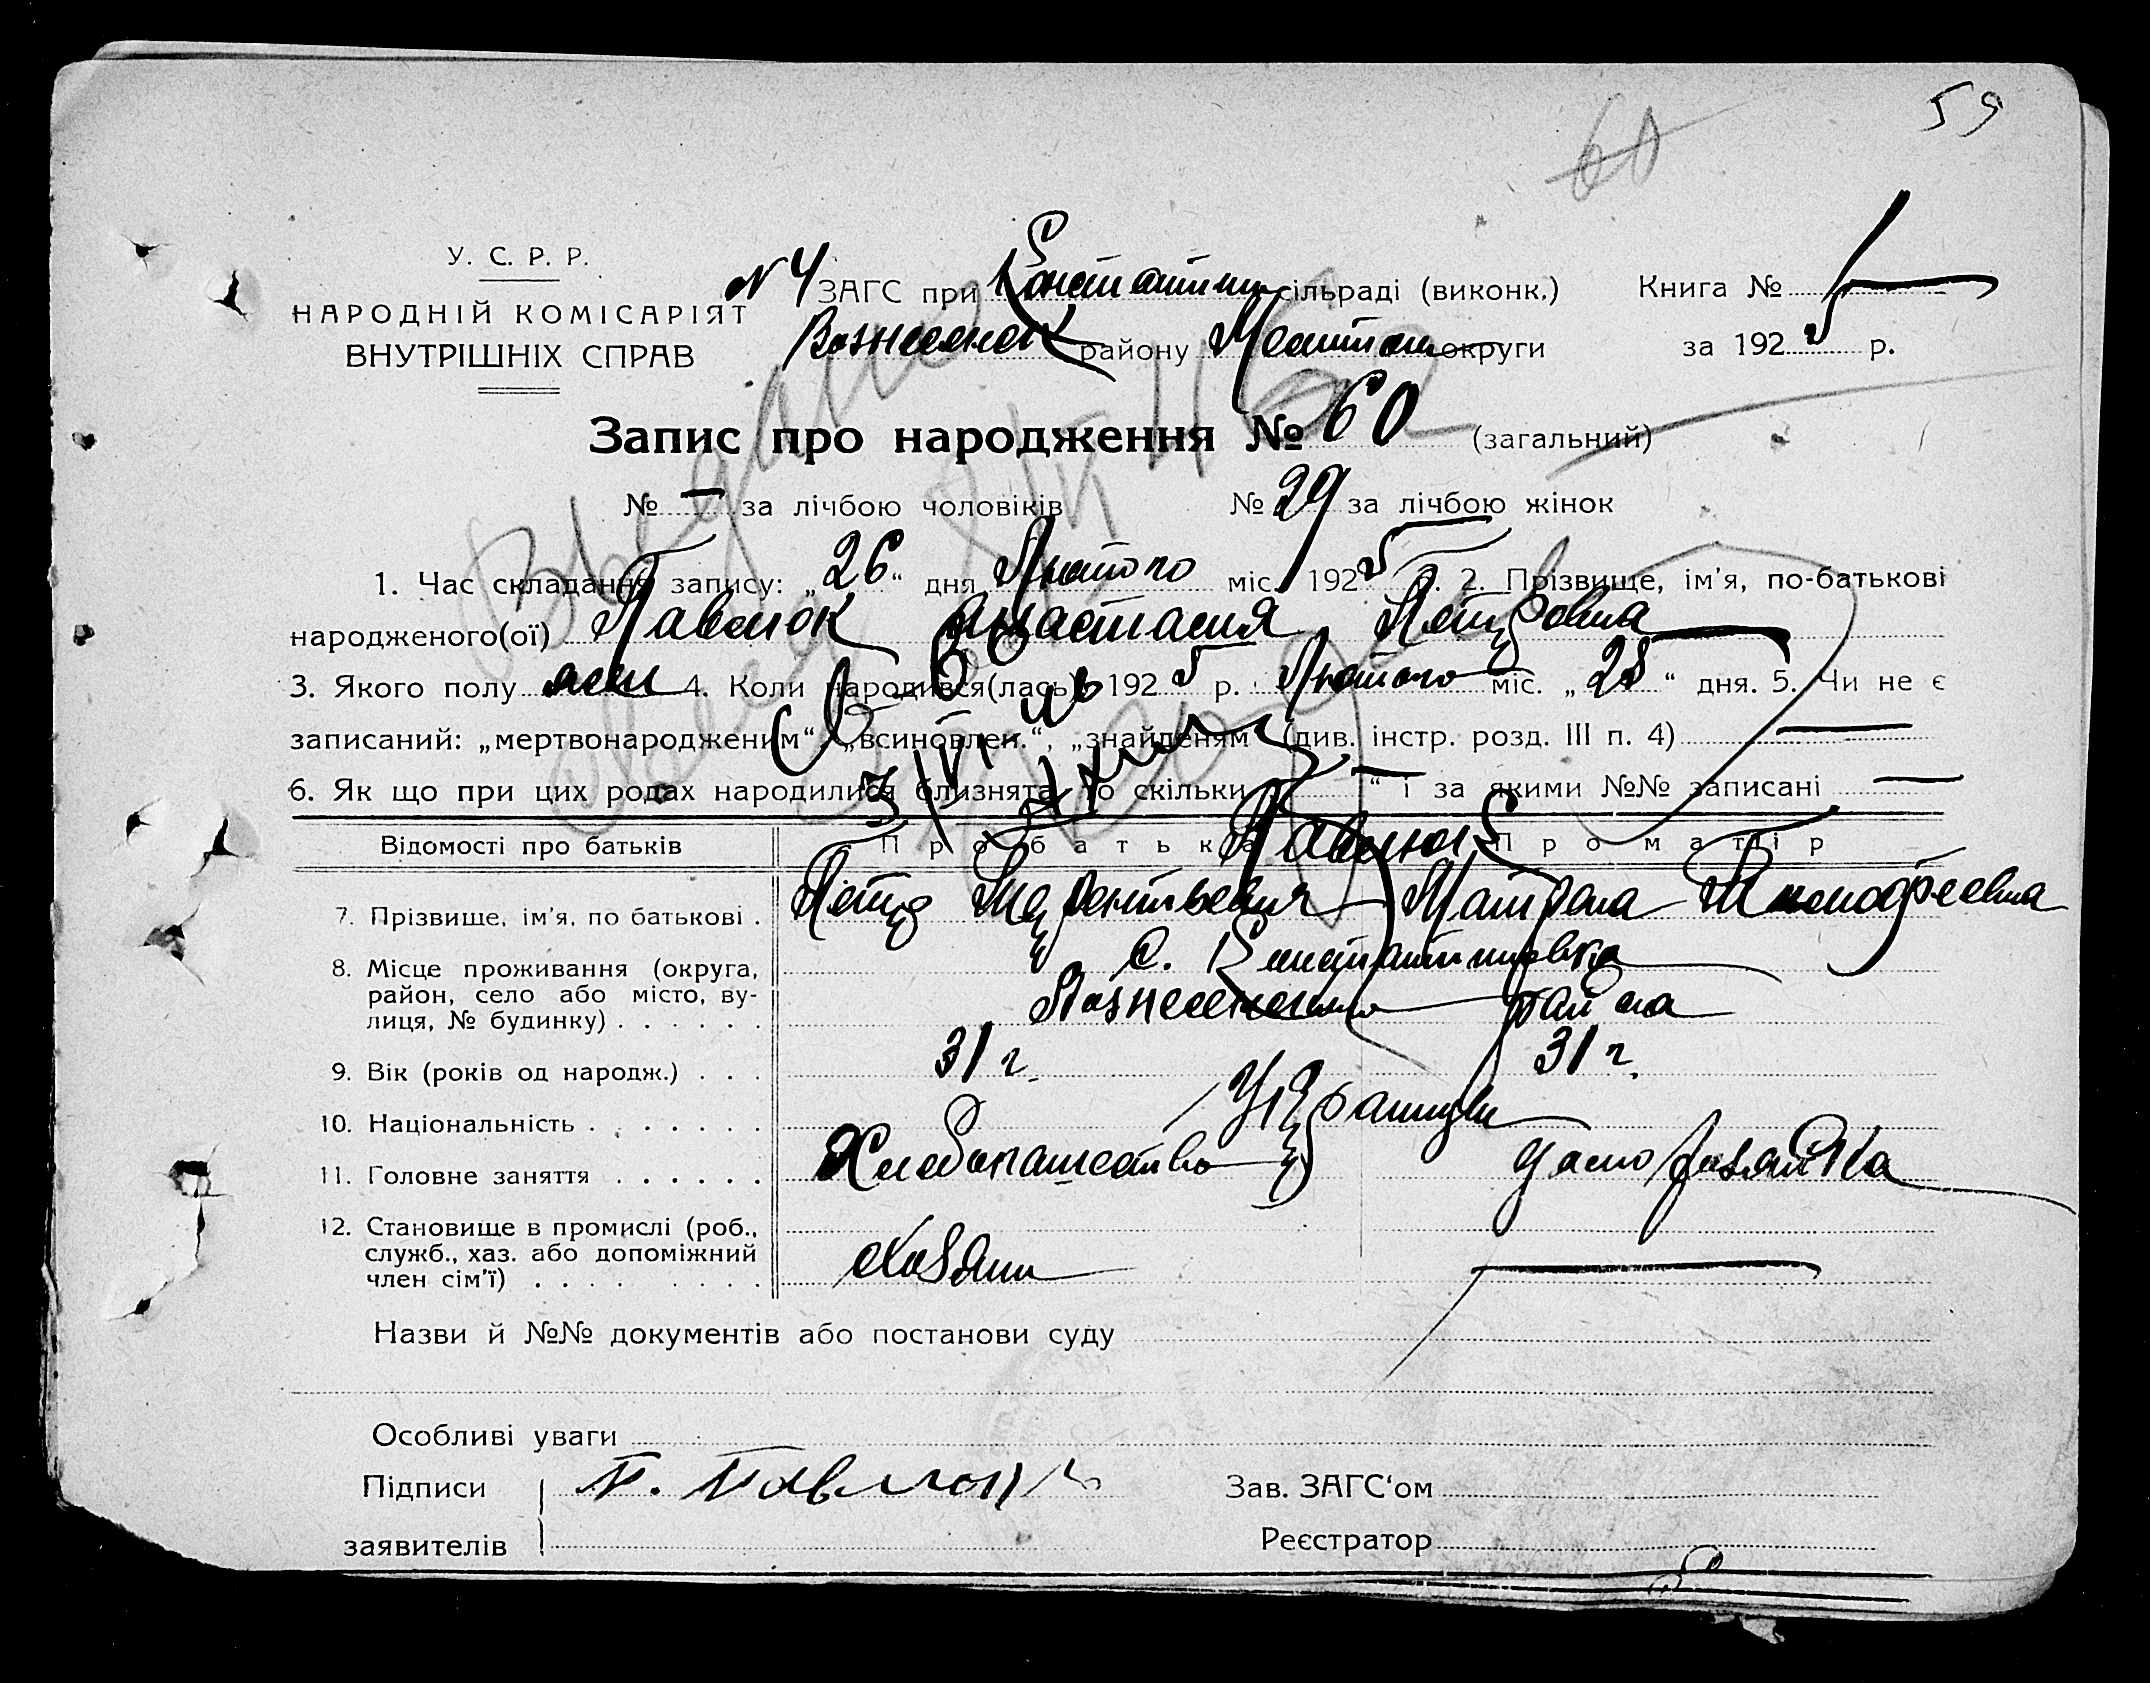 59
60
У. С. Р. Р.
НАРОДНІЙ КОМІСАРІЯТ
ВНУТРІШНІХ СПРАВ
N 4 ЗАГС при Константин сільраді (виконк.) Книга №
Вознесенск району округи за 192 5 р.
Запис про народження № 60 (загальний)
№ — за лічбою чоловіків № 29 за лічбою жінок
1. Час складання запису: „ 26 “ дня Лютого міс. 192 5 р. 2. Прізвище, ім'я, по-батькові
народженого(ої) Павлюк Анастасия Петровна
3. Якого полу жен 4. Коли народився(лась) 192 5 р. Лютого міс. „ 25 “ дня. 5. Чи не є
записаний: „мертвонародженим“, „всиновлен.“, „знайденям“ (див. інстр. розд. III п. 4) —
6. Як що при цих родах народилися близнята, то скільки „ — “ і за якими №№ записані —
Відомості про батьків Про батька Про матір
Павлюк
7. Прізвище, ім'я, по батькові . Петр Матрона
8. Місце проживання (округа, район, село або місто, вулиця, № будинку) . . . . . . с. Константиновка
Вознесенского района
9. Вік (років од народж.) . . . 31 г. 31 г.
10. Національність . . . . . . . Украинцы
11. Головне заняття . . . . . . Хлебопашество домохозяйка
12. Становище в промислі (роб., служб., хаз. або допоміжний член сім'ї) . . . . . . . . Хозяин —
Назви й №№ документів або постанови суду
Особливі уваги
Підписи П. Павлюк Зав. ЗАГС'ом
заявителів Реєстратор